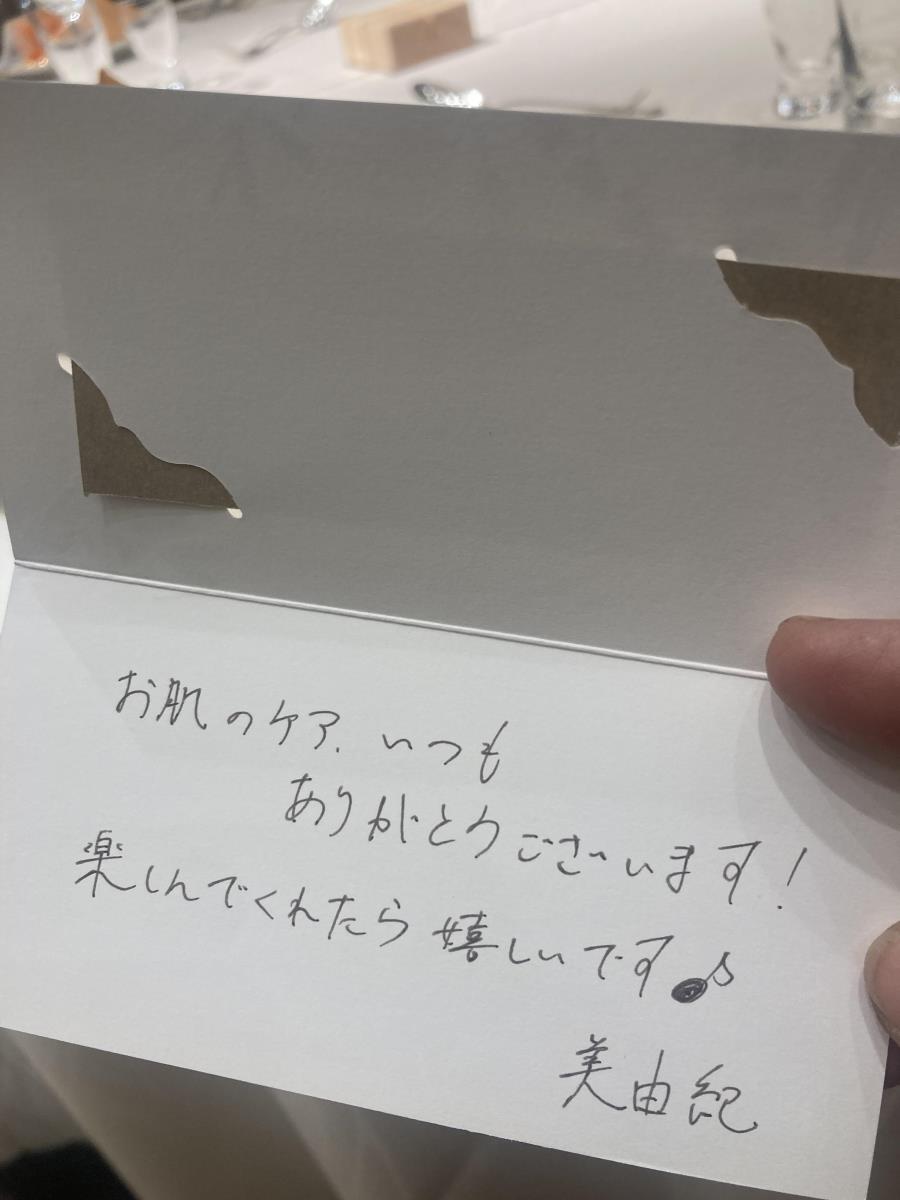 お肌のケア、いつも
ありがとうございます！
楽しんでくれたら嬉しいです♪
美由紀